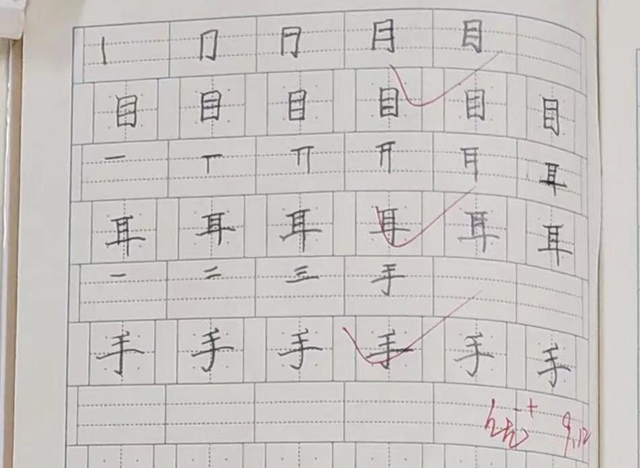 丨 冂 月 目
目 目 目 目 目 目
一 丅 丌 耳
耳 耳 耳 耳 耳 耳
一 二 三 手
手 手 手 手 手 手
9.12